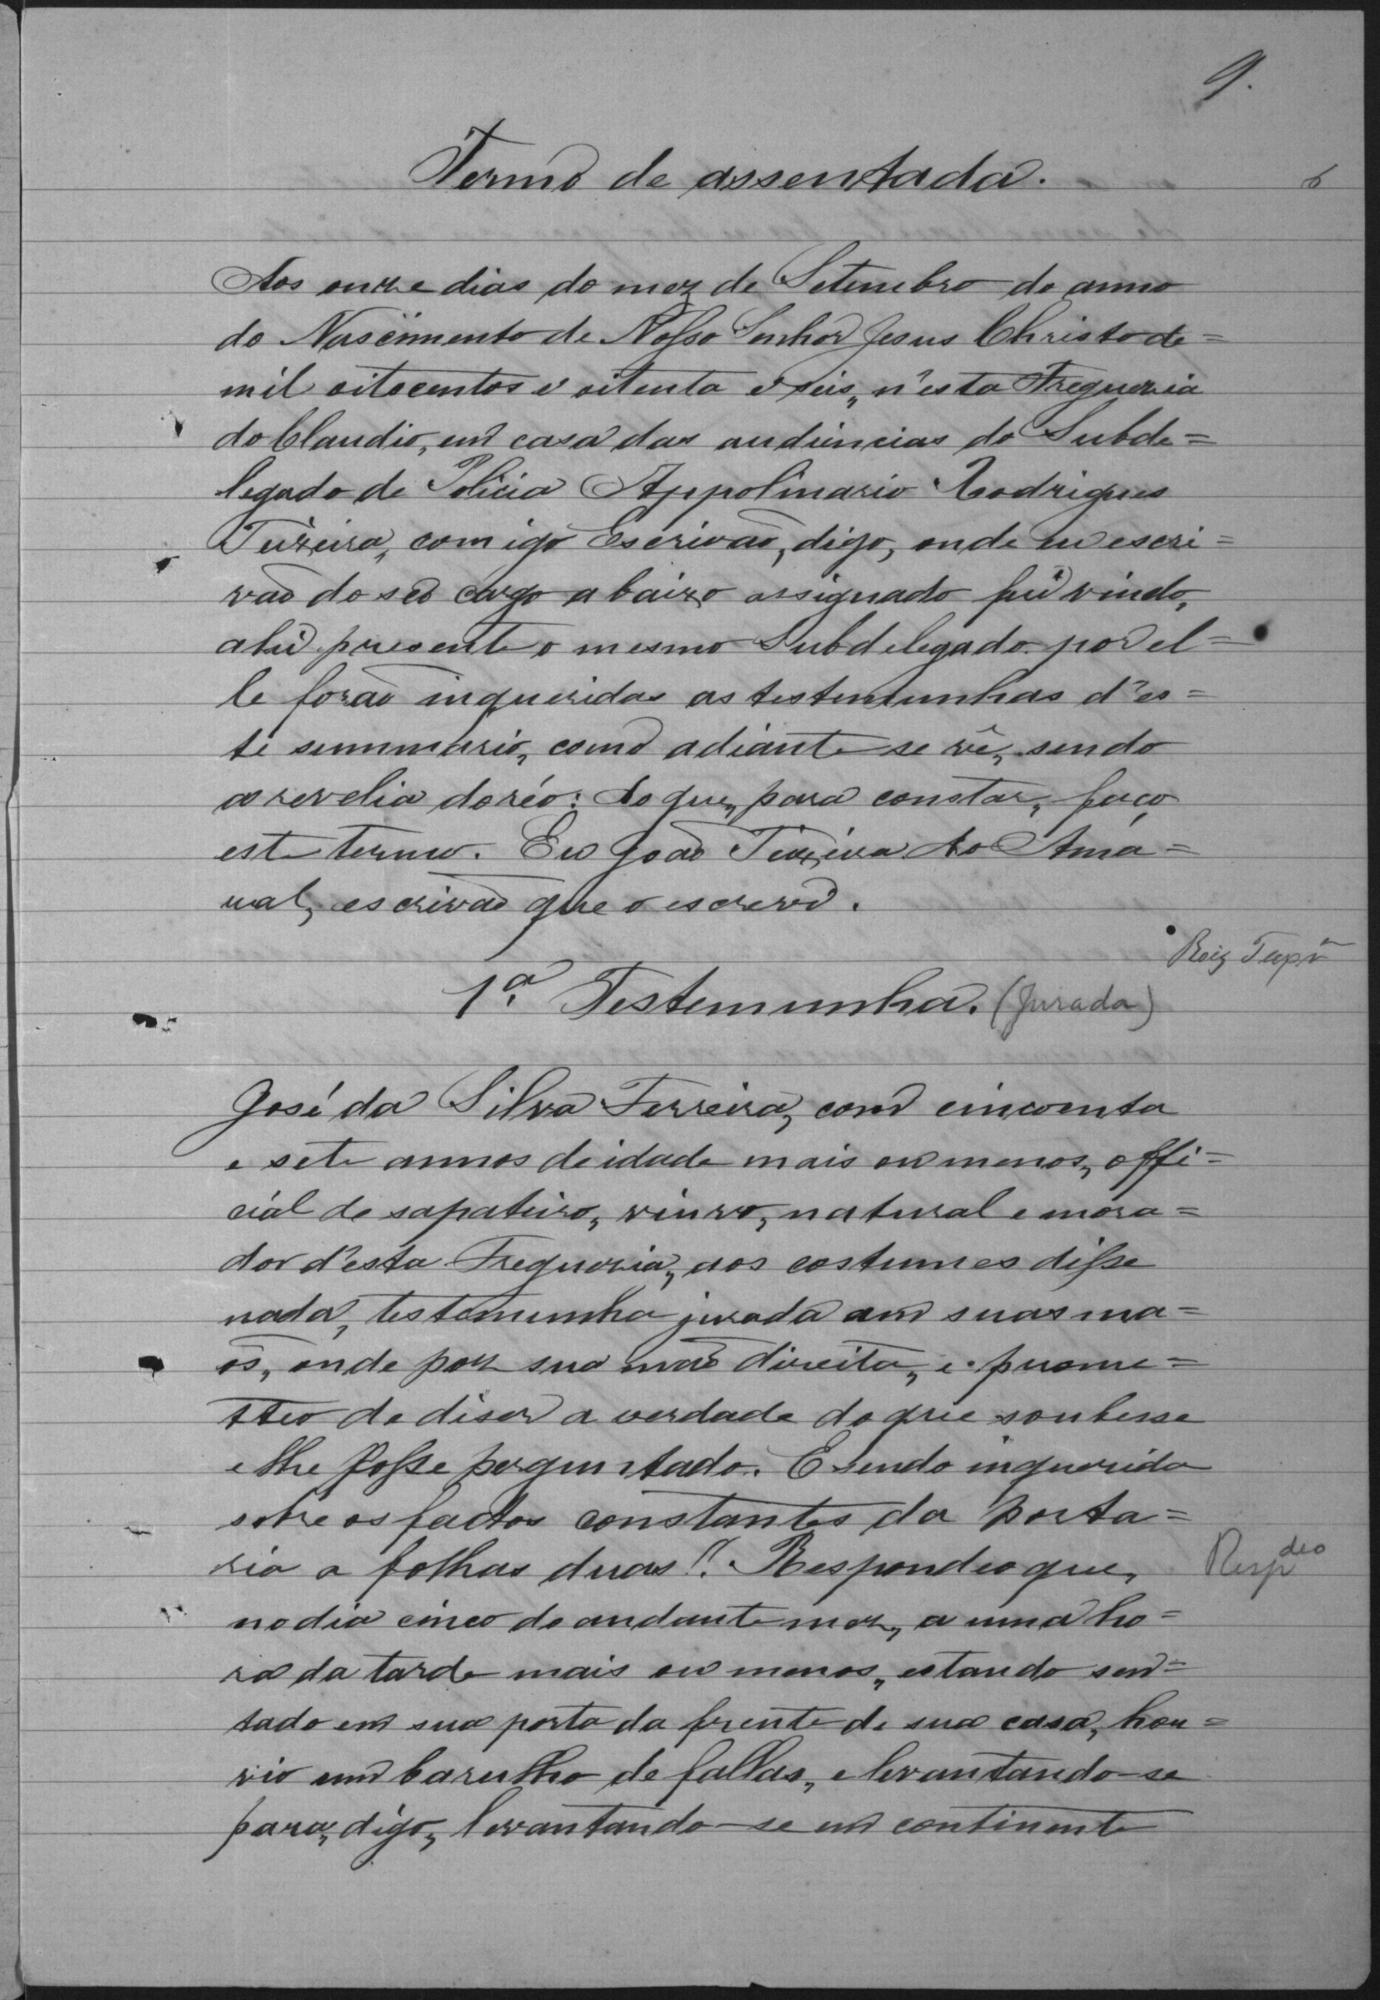 9.
Termo de assentada.
6
Aos onze dias do mez de Setembro do anno
do Nascimento de Nosso Senhor Jesus Christo de=
mil oitocentos e oitenta e seis, n'esta Freguezia
do Claudio, em casa das audiencias do Subde=
legado de Policia Appolinario Rodrigues
Teixeira, comigo Escrivão, digo, onde eu escri=
vão do seo cargo abaixo assignado fui vindo,
ahi presente o mesmo Subdelegado por el=
le forão inqueridas as testemunhas d'es=
te summario, como adiante se vê, sendo
a revelia do réo: do que, para constar, faço
este termo. Eu João Teixeira do Ama=
ral, escrivão que o escrevi.
1ª Testemunha. (Jurada)
José da Silva Ferreira, com cincoenta
e sete annos de idade mais ou menos, offi=
cial de sapateiro, viuvo, natural e mora=
dor d'esta Freguezia, aos costumes disse
nada, testemunha jurada em suas ma=
õs, onde poz sua mão direita, e prome=
tteo de diser a verdade do que soubesse
e lhe fosse perguntado. E sendo inquerida
sobre os factos constantes da porta=
ria a folhas duas? Respondeo que,
Resp deo
no dia cinco do andante mez, a uma ho=
ra da tarde mais ou menos, estando sen=
tado em sua porta da frente de sua casa, hou=
vio um barulho de fallas, e levantando-se
para, digo, levantando-se em continente